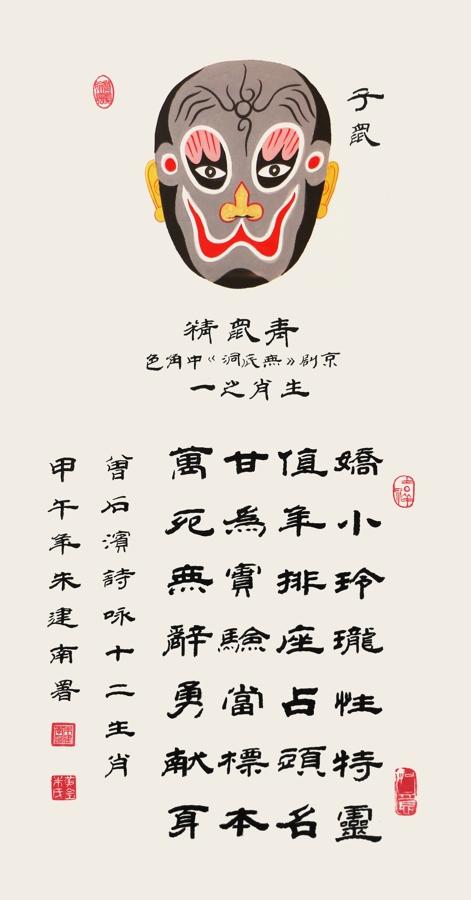 子鼠
青鼠精
京剧《無底洞》中角色
生肖之一
嬌小玲瓏性特靈
值年排座占頭名
甘為實驗當標本
萬死無辭勇献身
曾石濱詩咏十二生肖
甲午年朱建南署